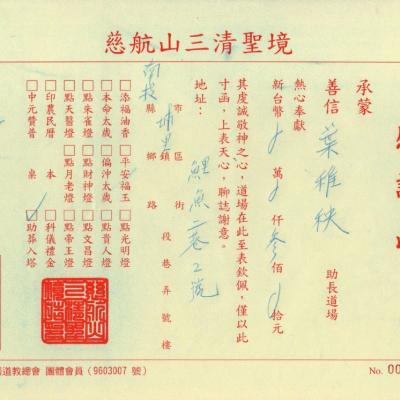 慈航山三清聖境
承蒙
善信 葉稚秧 助長道場
熱心奉獻
新台幣 萬 仟 叁 佰 拾元
其虔誠敬神之心，道場在此至表欽佩，僅以此
寸函，上表天心，聊誌謝意。
地址：
南投 縣 市
埔里 鄉 鎮 區
鯉魚 路 街 段 巷 2 弄 號 樓
□添福油香 □平安福玉 □點光明燈
□本命太歲 □偏沖太歲 □點貴人燈
□點朱雀燈 □點財神燈 □點文昌燈
□點天醫燈 □點月老燈 □點帝王燈
□印農民曆 本 □科儀禮金
□中元贊普 桌 □助葬入塔
道教總會 團體會員（9603007 號）
No. 00